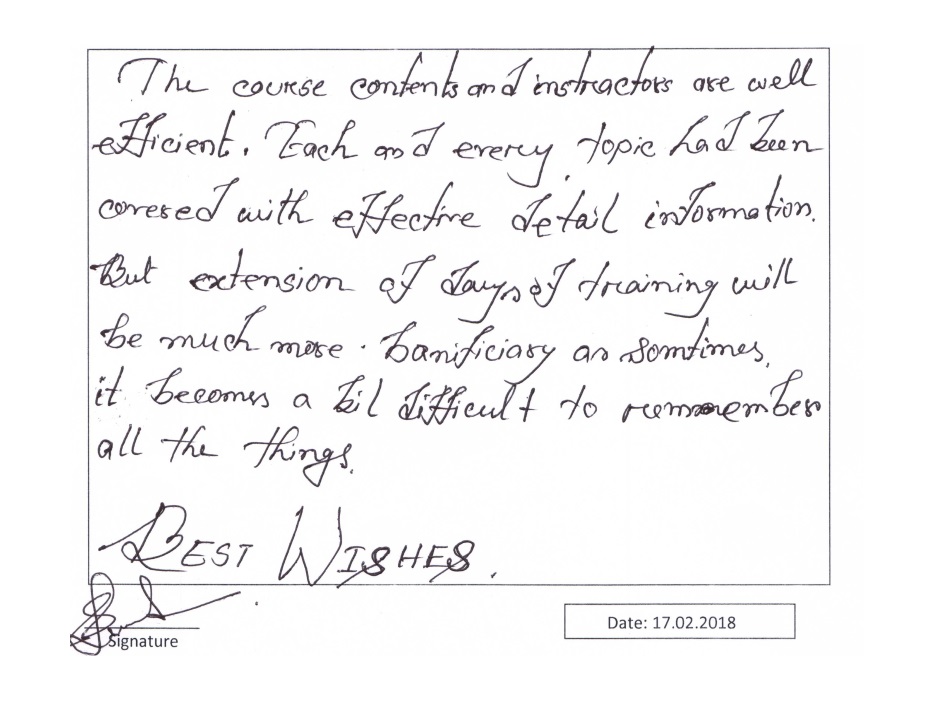 The course contents and instractors are well
efficient. Each and every topic had been
covered with effective detail information.
But extension of days of training will
be much more banificiary as somtimes,
it becomes a bit difficult to remmember
all the things.
BEST WISHES.
Signature
Date: 17.02.2018